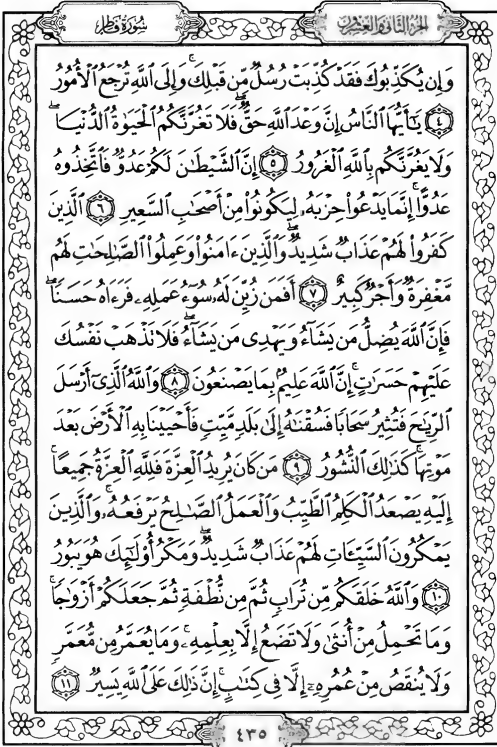 سُورَةُ فَاطِرٍ
الجزء الثاني والعشرون
وَإِن يُكَذِّبُوكَ فَقَدْ كُذِّبَتْ رُسُلٌ مِّن قَبْلِكَ ۚ وَإِلَى ٱللَّهِ تُرْجَعُ ٱلْأُمُورُ
٤ يَٰٓأَيُّهَا ٱلنَّاسُ إِنَّ وَعْدَ ٱللَّهِ حَقٌّ ۖ فَلَا تَغُرَّنَّكُمُ ٱلْحَيَوٰةُ ٱلدُّنْيَا ۖ
وَلَا يَغُرَّنَّكُم بِٱللَّهِ ٱلْغَرُورُ ٥ إِنَّ ٱلشَّيْطَٰنَ لَكُمْ عَدُوٌّ فَٱتَّخِذُوهُ
عَدُوًّا ۚ إِنَّمَا يَدْعُوا۟ حِزْبَهُۥ لِيَكُونُوا۟ مِنْ أَصْحَٰبِ ٱلسَّعِيرِ ٦ ٱلَّذِينَ
كَفَرُوا۟ لَهُمْ عَذَابٌ شَدِيدٌ ۖ وَٱلَّذِينَ ءَامَنُوا۟ وَعَمِلُوا۟ ٱلصَّٰلِحَٰتِ لَهُم
مَّغْفِرَةٌ وَأَجْرٌ كَبِيرٌ ٧ أَفَمَن زُيِّنَ لَهُۥ سُوٓءُ عَمَلِهِۦ فَرَءَاهُ حَسَنًا ۖ
فَإِنَّ ٱللَّهَ يُضِلُّ مَن يَشَآءُ وَيَهْدِى مَن يَشَآءُ ۖ فَلَا تَذْهَبْ نَفْسُكَ
عَلَيْهِمْ حَسَرَٰتٍ ۚ إِنَّ ٱللَّهَ عَلِيمٌۢ بِمَا يَصْنَعُونَ ٨ وَٱللَّهُ ٱلَّذِىٓ أَرْسَلَ
ٱلرِّيَٰحَ فَتُثِيرُ سَحَابًا فَسُقْنَٰهُ إِلَىٰ بَلَدٍ مَّيِّتٍ فَأَحْيَيْنَا بِهِ ٱلْأَرْضَ بَعْدَ
مَوْتِهَا ۚ كَذَٰلِكَ ٱلنُّشُورُ ٩ مَن كَانَ يُرِيدُ ٱلْعِزَّةَ فَلِلَّهِ ٱلْعِزَّةُ جَمِيعًا ۚ
إِلَيْهِ يَصْعَدُ ٱلْكَلِمُ ٱلطَّيِّبُ وَٱلْعَمَلُ ٱلصَّٰلِحُ يَرْفَعُهُۥ ۚ وَٱلَّذِينَ
يَمْكُرُونَ ٱلسَّيِّـَٔاتِ لَهُمْ عَذَابٌ شَدِيدٌ ۖ وَمَكْرُ أُو۟لَٰٓئِكَ هُوَ يَبُورُ
١٠ وَٱللَّهُ خَلَقَكُم مِّن تُرَابٍ ثُمَّ مِن نُّطْفَةٍ ثُمَّ جَعَلَكُمْ أَزْوَٰجًا ۚ
وَمَا تَحْمِلُ مِنْ أُنثَىٰ وَلَا تَضَعُ إِلَّا بِعِلْمِهِۦ ۚ وَمَا يُعَمَّرُ مِن مُّعَمَّرٍ
وَلَا يُنقَصُ مِنْ عُمُرِهِۦٓ إِلَّا فِى كِتَٰبٍ ۚ إِنَّ ذَٰلِكَ عَلَى ٱللَّهِ يَسِيرٌ ١١
٤٣٥